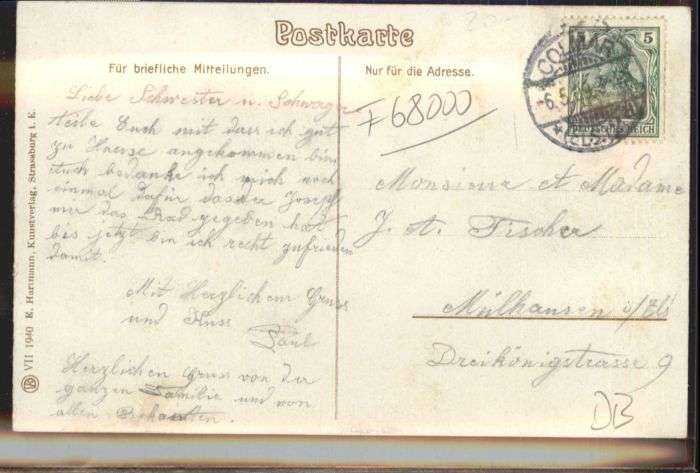 Postkarte
Für briefliche Mitteilungen.
Nur für die Adresse.
Liebe Schwester u. Schwager
Teile Euch mit dass ich gut
zu Hause angekommen bin
auch bedanke ich mich noch
einmal dafür dass der Josef
mir das Rad gegeben hat
bis jetzt bin ich recht zufrieden
damit.
Mit Herzlichem Gruss
und Kuss
Paul
Herzlichen Gruss von der
ganzen Familie und von
allen
F68000
Monsieur et Madame
J. A. Fischer
Mülhausen i/Els
Dreikönigstrasse 9
DB
COLMAR
5
DEUTSCHES REICH
VII 1940 E. Hartmann, Kunstverlag, Strassburg i. E.